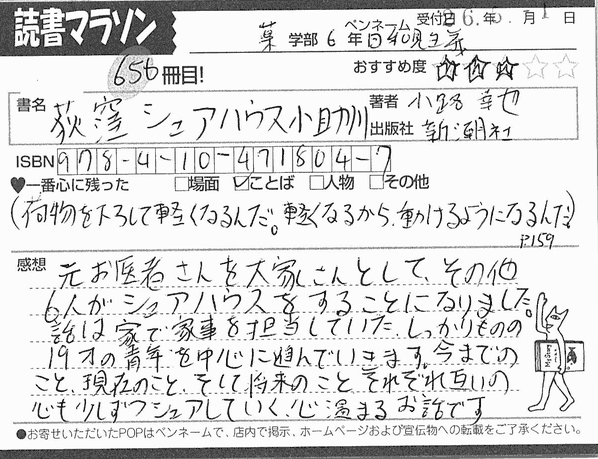 読書マラソン
ペンネーム 受付日 26.年6.月1日
薬学部6年 日和見主義
656冊目!
おすすめ度 ☆☆☆☆☆
書名 荻窪シェアハウス小助川
著者 小路 幸也
出版社 新潮社
ISBN 978-4-10-471804-7
♥一番心に残った □場面 ☑ことば □人物 □その他
(荷物を下ろして軽くなるんだ。軽くなるから、動けるようになるんだ)
P159
感想
元お医者さんを大家さんとして、その他
6人がシェアハウスをすることになりました。
話は家で家事を担当していた、しっかりものの
19才の青年を中心に進んでいきます。今までの
こと、現在のこと、そして将来のこと それぞれ互いの
心も少しずつシェアしていく、心温まるお話です
●お寄せいただいたPOPはペンネームで、店内で掲示、ホームページおよび宣伝物への転載をご了承ください。